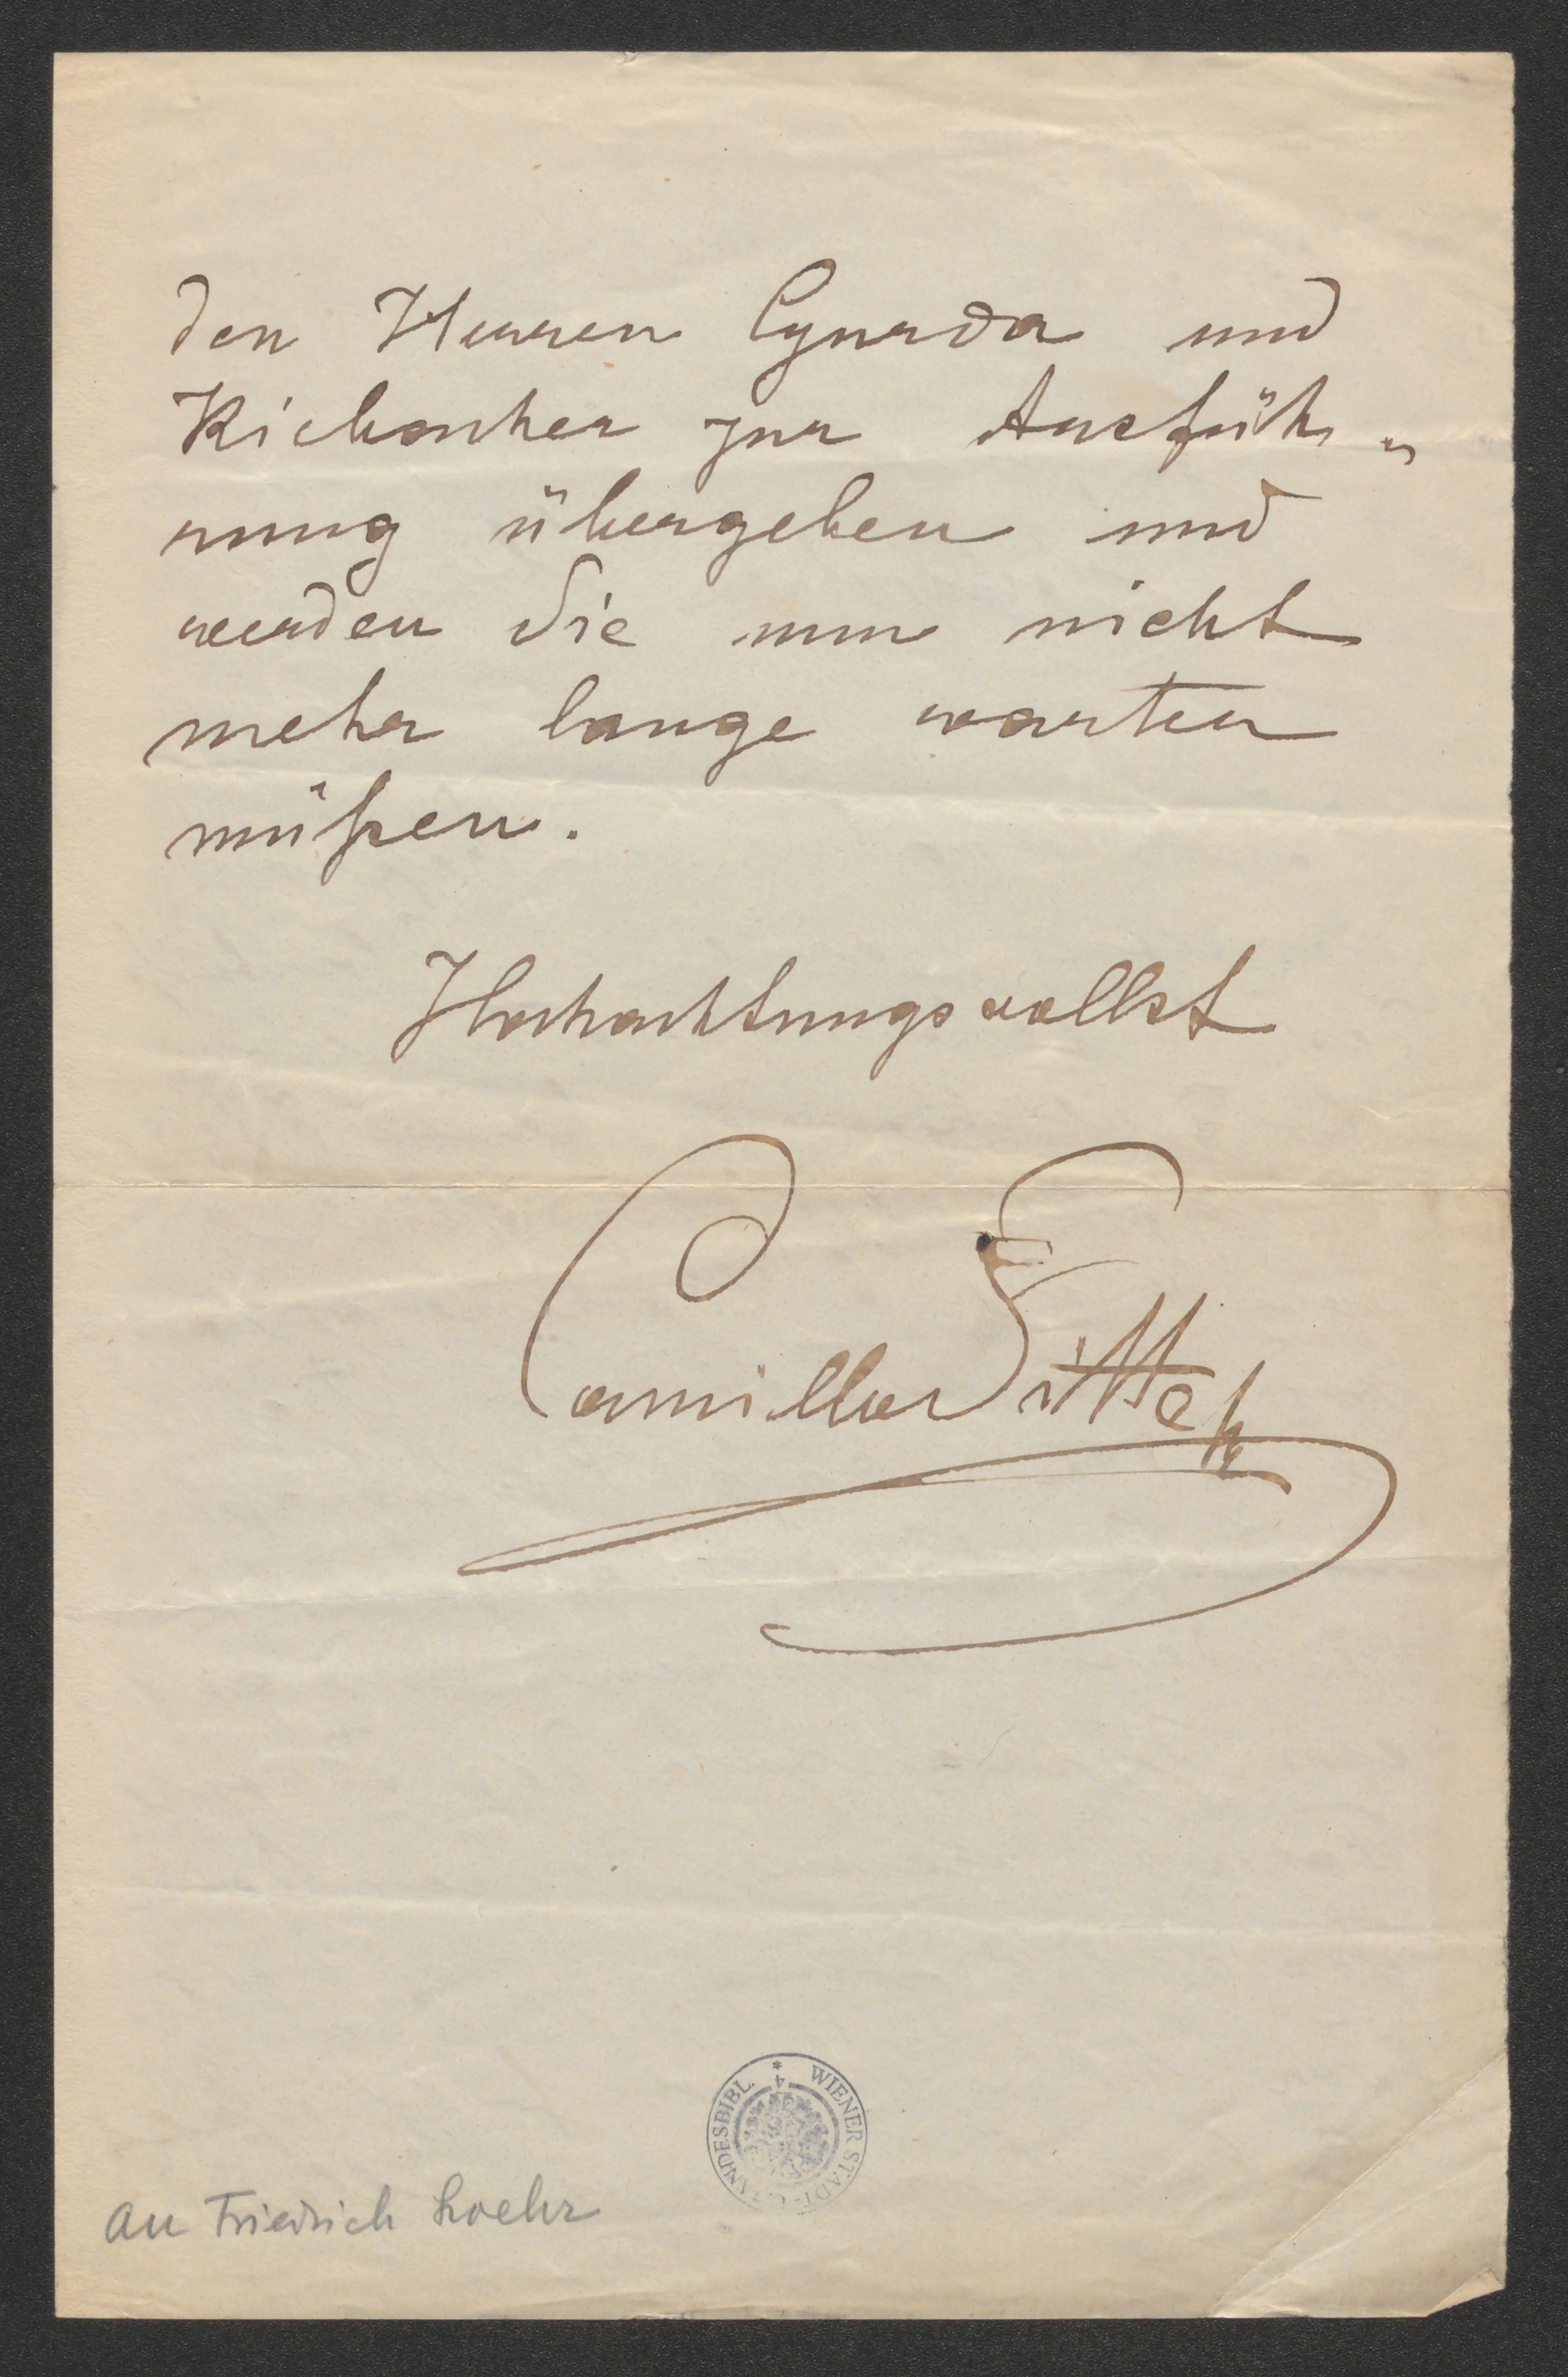 den Herren Cyurda und
Richonher zur Ausfüh„
rung übergeben und
werden Sie nun nicht
mehr lange warten
müßen.
Hochachtungsvollst
Camillo Sitte
WIENER STADT- LANDESBIBL. *
an Friedrich Loehr